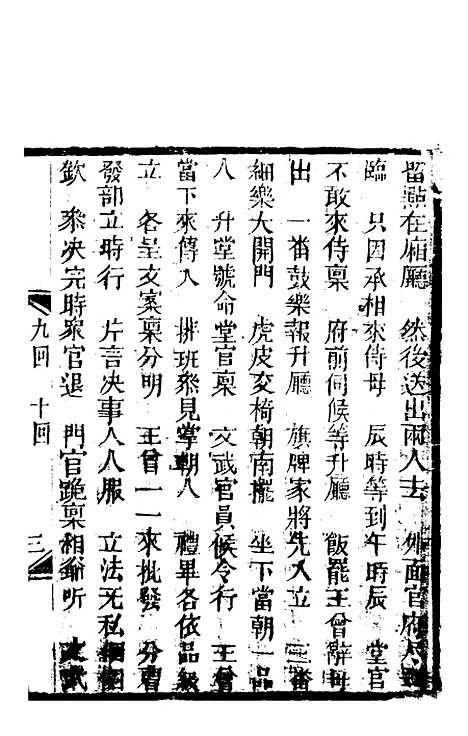 留 在廂廳　然後送出兩人去　外面官府
臨　只因承相來侍母　辰時等到午時辰　堂官
不敢來侍稟　府前伺候等升廳　飯罷王曾辭母
出　一番鼓樂報升廳　旗牌家將先入立　三番
細樂大開門　虎皮交椅朝南擺　坐下當朝一品
人　升堂號命堂官稟　文武官員候令行　王曾
當下來傳入　排班叅見掌朝人　禮畢各依品級
立　各呈文案稟分明　王曾一一來批發　分曹
發部立時行　片言决事人人服　立法无私
欽　叅决完時衆官退　門官跪稟相爺听　文武
九回　十回　三